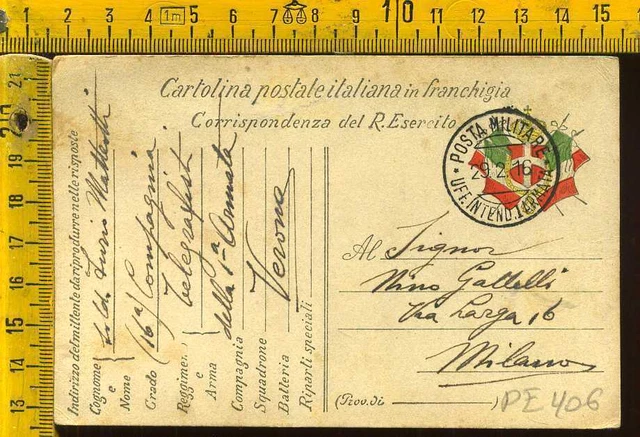 Cartolina postale italiana in franchigia
Corrispondenza del R. Esercito
* POSTA MILITARE *
29.2.16
UFF. INTEND. 1 ARMATA
Al Signor
Nino Gallelli
Via Larga 16
Milano
(Prov. di )
PE 406
Indirizzo del mittente da riprodurre nelle risposte
Cognome e Nome
Grado
16ª Compagnia
Reggimen. e Arma
telegrafisti
della 1ª Armata
Compagnia
Squadrone
Batteria
Verona
Riparti speciali
1 2 3 4 1m 5 6 7 8 9 10 11 12 13 14 15
21 20 19 18 17 16 15 14 13